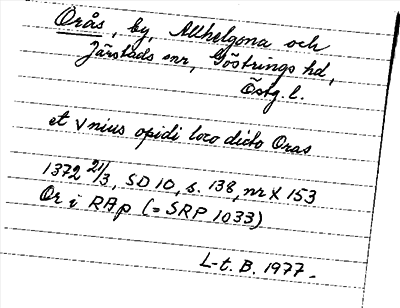 Orås, by, Allhelgona och
Järstads snr, Göstrings hd,
Östg. l.
et vnius opidi loco dicto Oras
1372 21/3, SD 10, s. 138, nr X 153
Or i RAp (= SRP 1033)
L-t. B. 1977.